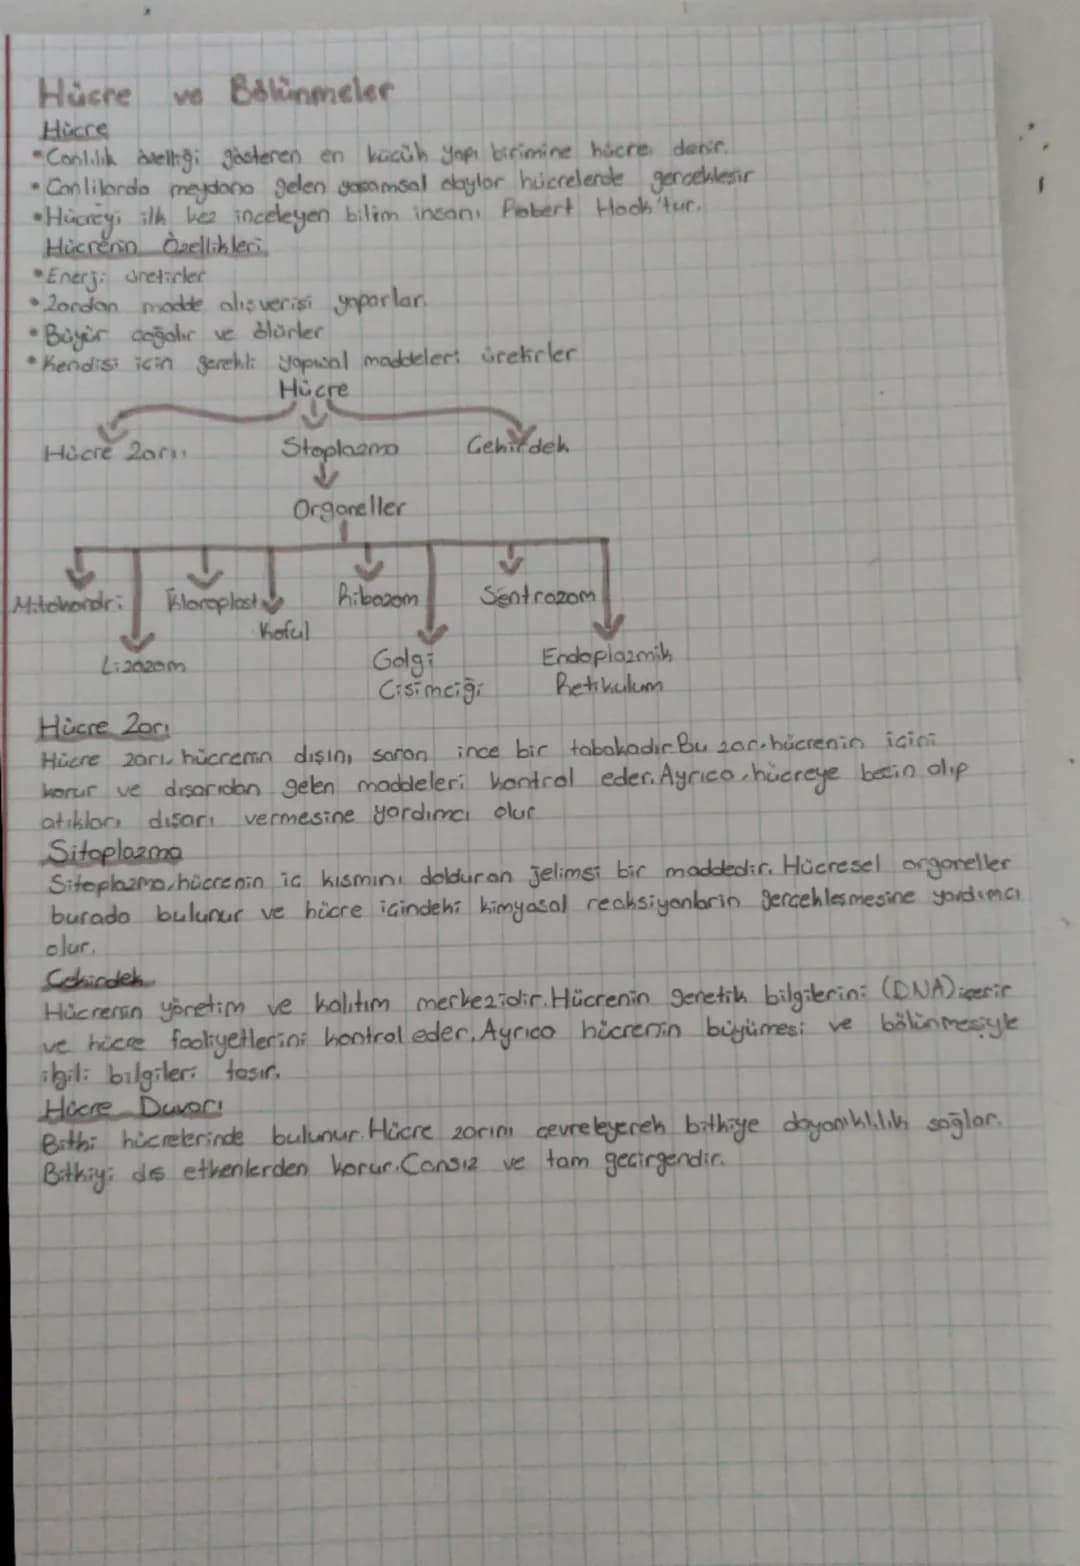 Hücre ve Bölünmeler
Hücre
•Canlılık özelliği gösteren en küçük yapı birimine hücre denir.
•Canlılarda meydana gelen yaşamsal olaylar hücrelerde gerçekleşir
•Hücreyi ilk kez inceleyen bilim incanı Robert Hook'tur.
Hücrenin Özellikleri
•Enerji üretirler
•Zardan madde alışverişi yaparlar.
•Büyür çoğalır ve ölürler
•Kendisi için gerekli yapısal maddeleri üretirler
Hücre
Hücre Zarı Stoplazma Çekirdek
Organeller
Mitokondri Kloroplast Ribozom Sentrozom
Koful
Lizozom Golgi Endoplazmik
Cisimciği Retikulum
Hücre Zarı
Hücre zarı, hücrenin dışını saran ince bir tabakadır.Bu zar, hücrenin içini
korur ve dışarıdan gelen maddeleri kontrol eder.Ayrıca, hücreye besin alıp
atıkları dışarı vermesine yardımcı olur
Sitoplazma
Sitoplazma, hücrenin iç kısmını dolduran jelimsi bir maddedir. Hücresel organeller
burada bulunur ve hücre içindeki kimyasal reaksiyonların gerçekleşmesine yardımcı
olur.
Çekirdek
Hücrenin yönetim ve kalıtım merkezidir.Hücrenin genetik bilgilerini (DNA) içerir
ve hücre faaliyetlerini kontrol eder.Ayrıca hücrenin büyümesi ve bölünmesiyle
ilgili bilgileri taşır.
Hücre Duvarı
Bitki hücrelerinde bulunur.Hücre zarını çevreleyerek bitkiye dayanıklılık sağlar.
Bitkiyi dış etkenlerden korur.Cansız ve tam geçirgendir.